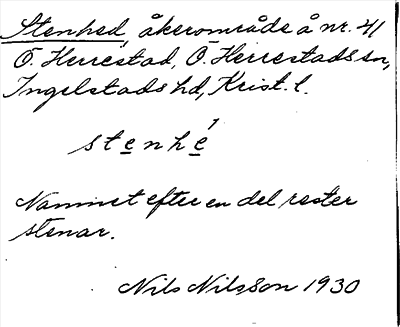 Stenhed, åkerområde å nr. 41
Ö. Herrestad, Ö. Herrestads sn,
Ingelstads hd, Krist. l.
stenhé̱
Namnet efter en del rester
stenar.
Nils Nilsson 1930